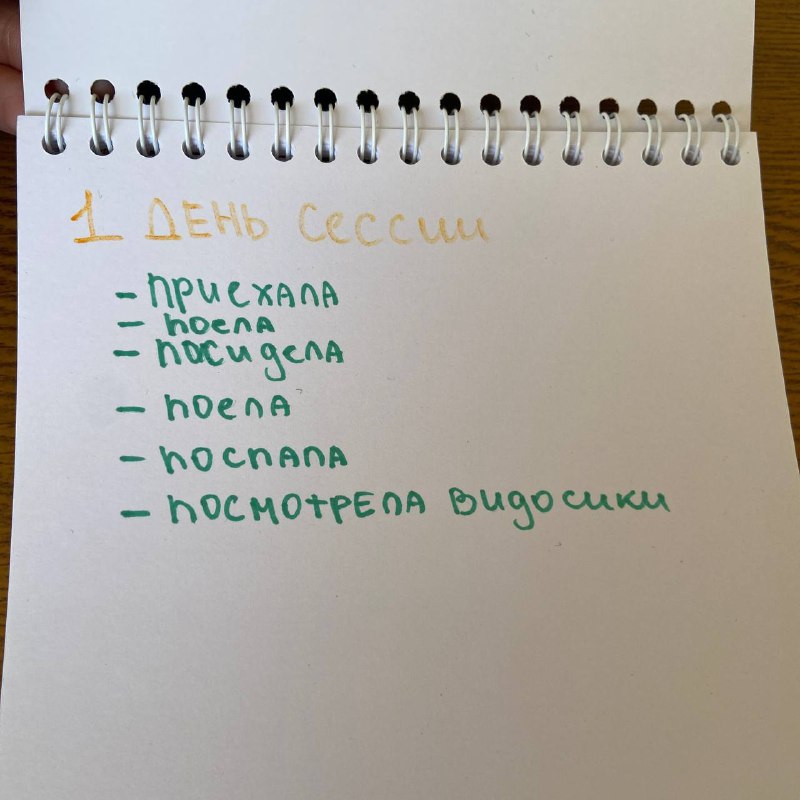 1 ДЕНЬ сессии
- приехала
- поела
- посидела
- поела
- поспала
- посмотрела видосики